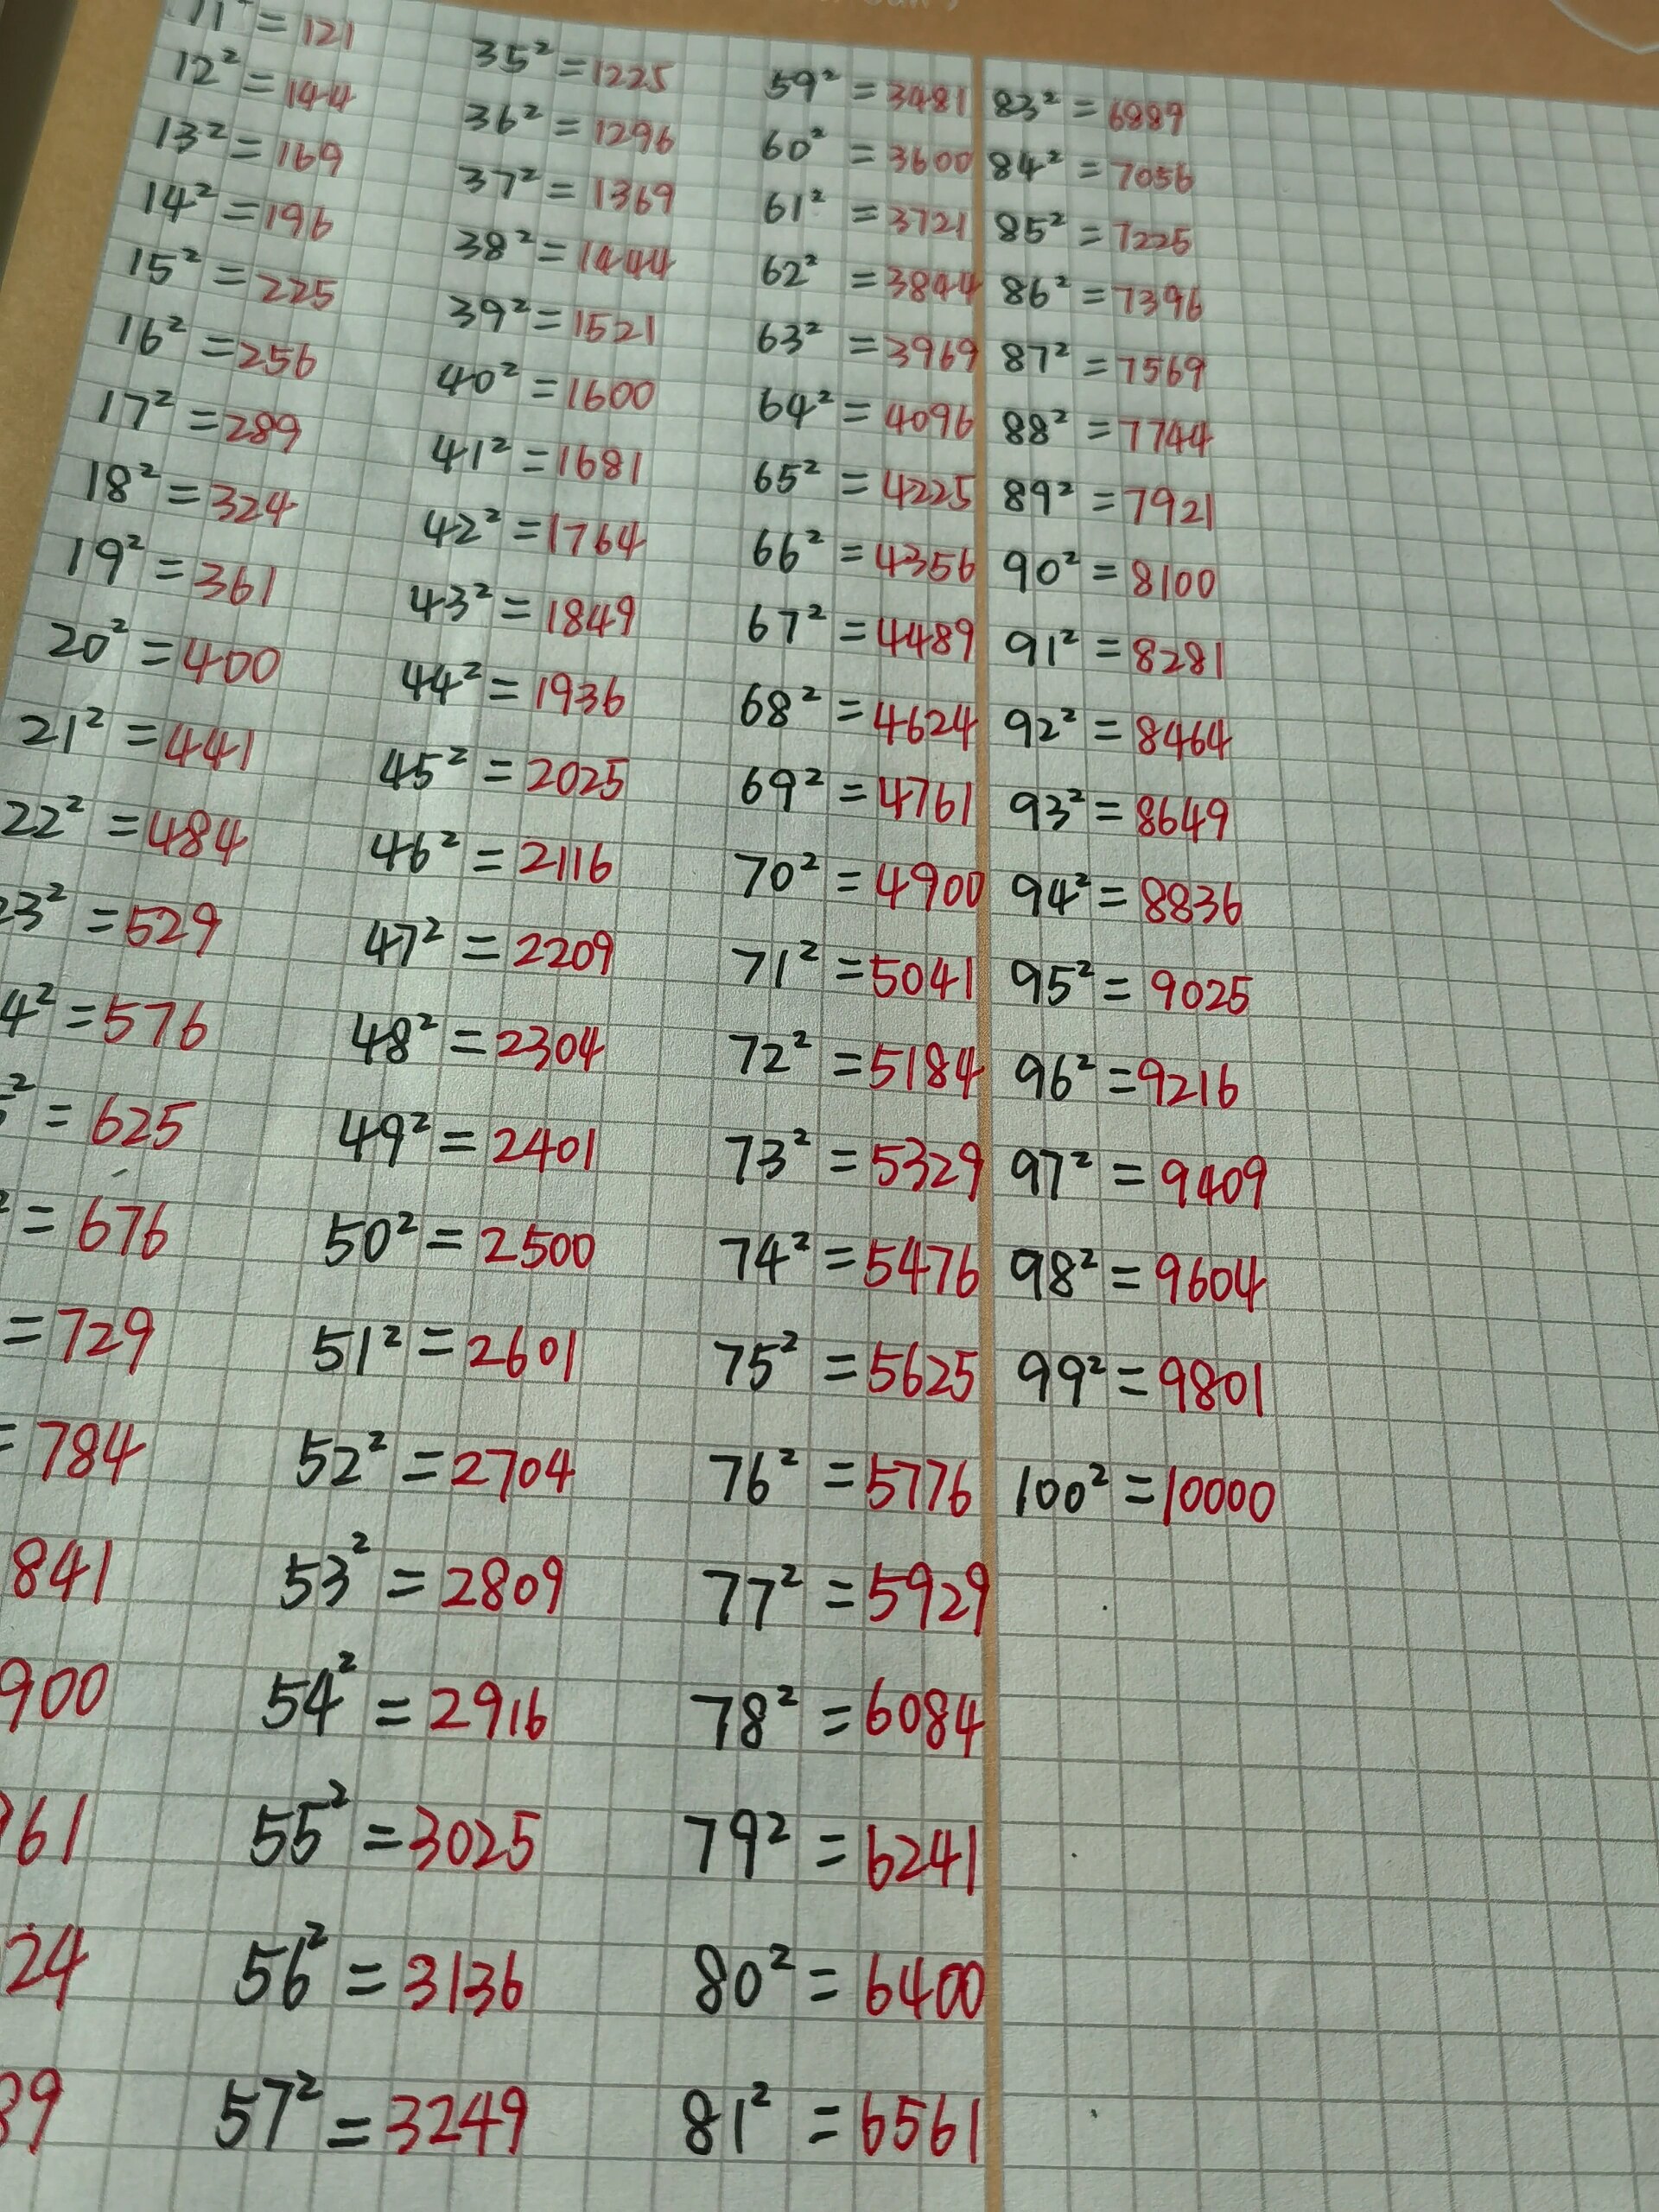 11² = 121
12² = 144
13² = 169
14² = 196
15² = 225
16² = 256
17² = 289
18² = 324
19² = 361
20² = 400
21² = 441
22² = 484
23² = 529
4² = 576
² = 625
² = 676
= 729
= 784
841
900
961
24
89
35² = 1225
36² = 1296
37² = 1369
38² = 1444
39² = 1521
40² = 1600
41² = 1681
42² = 1764
43² = 1849
44² = 1936
45² = 2025
46² = 2116
47² = 2209
48² = 2304
49² = 2401
50² = 2500
51² = 2601
52² = 2704
53² = 2809
54² = 2916
55² = 3025
56² = 3136
57² = 3249
59² = 3481
60² = 3600
61² = 3721
62² = 3844
63² = 3969
64² = 4096
65² = 4225
66² = 4356
67² = 4489
68² = 4624
69² = 4761
70² = 4900
71² = 5041
72² = 5184
73² = 5329
74² = 5476
75² = 5625
76² = 5776
77² = 5929
78² = 6084
79² = 6241
80² = 6400
81² = 6561
83² = 6889
84² = 7056
85² = 7225
86² = 7396
87² = 7569
88² = 7744
89² = 7921
90² = 8100
91² = 8281
92² = 8464
93² = 8649
94² = 8836
95² = 9025
96² = 9216
97² = 9409
98² = 9604
99² = 9801
100² = 10000